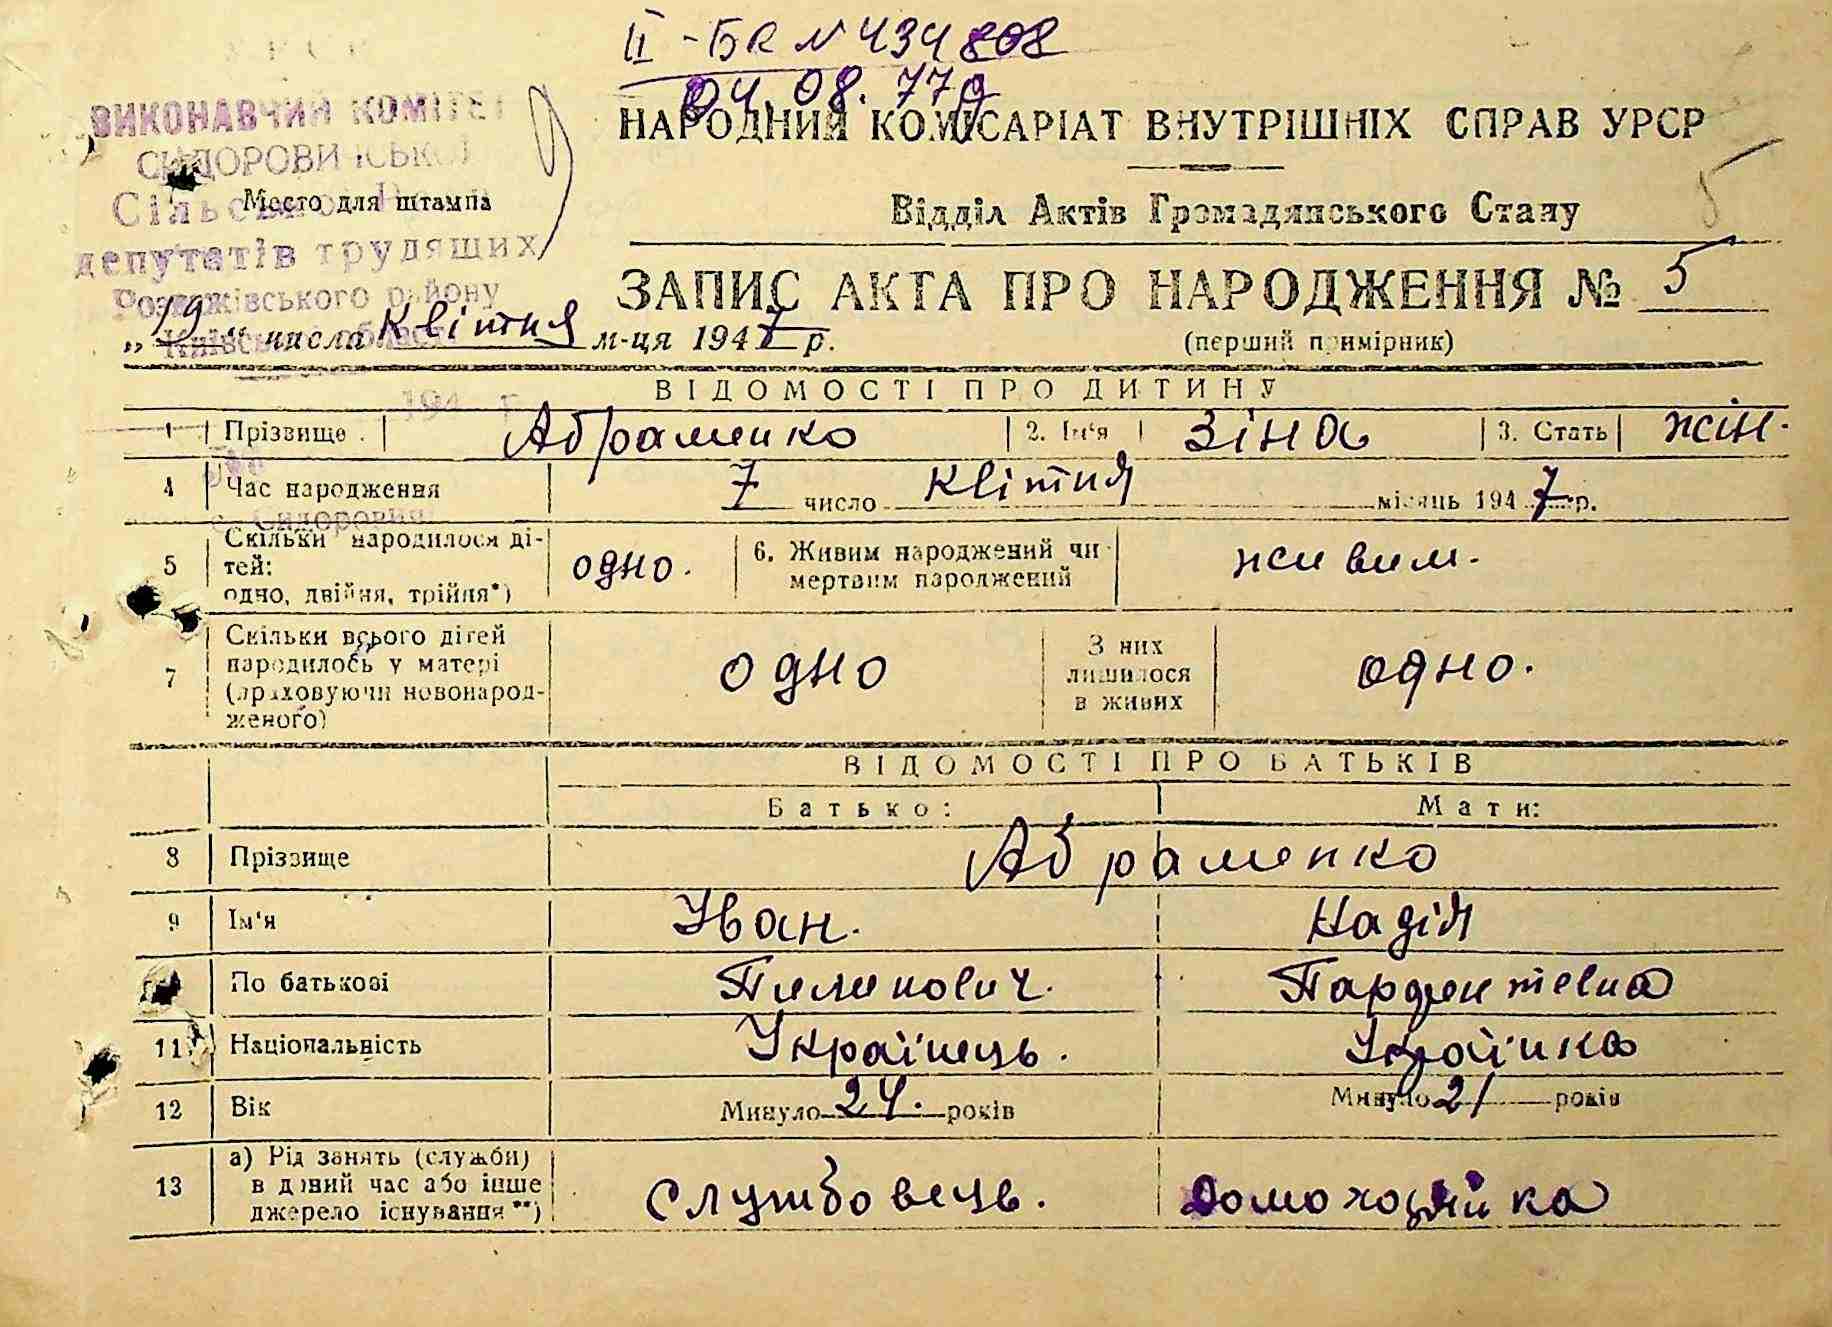 ІІ - БК № 434808
04.08.77р
НАРОДНИЙ КОМІСАРІАТ ВНУТРІШНІХ СПРАВ УРСР
ВИКОНАВЧИЙ КОМІТЕТ
СИДОРОВИЧСЬКОЇ
Место для штампа
Сільської Ради
депутатів трудящих
Розважівського району
Київської області
194 р.
с. Сидоровичі
5
Відділ Актів Громадянського Стану
ЗАПИС АКТА ПРО НАРОДЖЕННЯ № 5
(перший примірник)
„19" числа Квітня м-ця 1947 р.
ВІДОМОСТІ ПРО ДИТИНУ
1 Прізвище Абраменко 2. Ім'я Зіна 3. Стать жін.
4 Час народження 7 число Квітня місяць 1947 р.
5 Скільки народилося ді-
тей:
одно, двійня, трійня*) одно. 6. Живим народжений чи
мертвим народжений живим.
7 Скільки всього дітей
народилось у матері
(враховуючи новонарод-
женого) одно З них
лишилося
в живих одно.
ВІДОМОСТІ ПРО БАТЬКІВ
Батько: Мати:
8 Прізвище Абраменко
9 Ім'я Іван. Надія
По батькові Пилипович. Парфентевна
11 Національність Українець. Українка
12 Вік Минуло 24. років Минуло 21 років
13 а) Рід занять (служби)
в даний час або інше
джерело існування**) службовець. домохозяйка